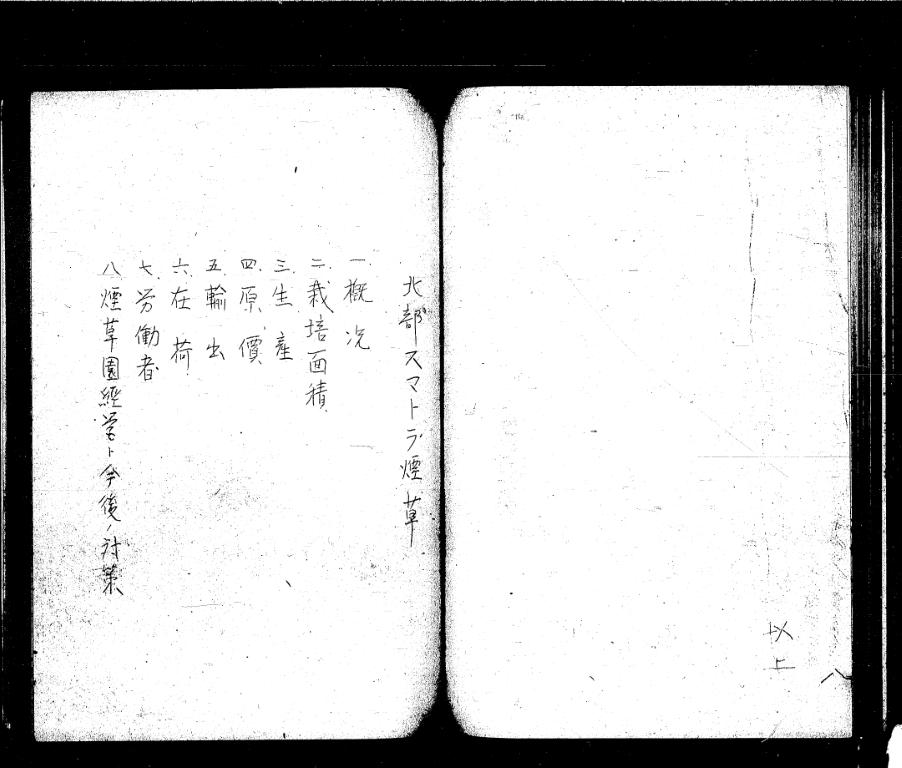 以上
八
北部スマトラ煙草
一、概況
二、栽培面積
三、生産
四、原價
五、輸出
六、在荷
七、労働者
八、煙草園經営ト今後ノ対策